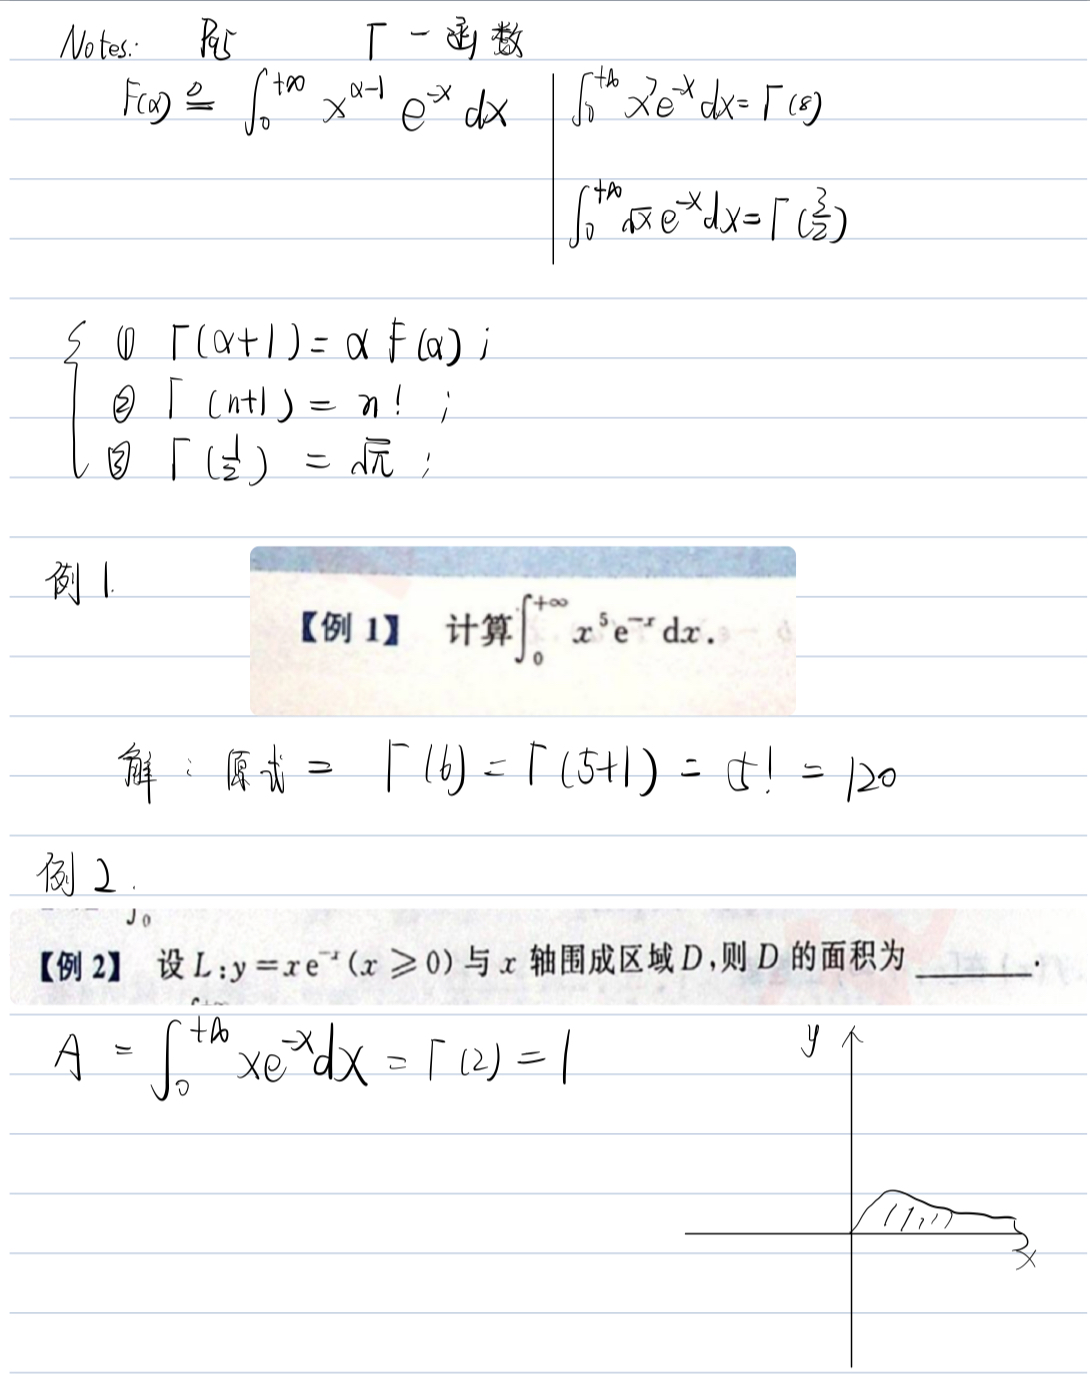 Notes: P95 Γ-函数
Γ(α) ≜ ∫₀^{+∞} x^{α-1} e^{-x} dx | ∫₀^{+∞} x⁷e^{-x}dx = Γ(8)
∫₀^{+∞} √x e^{-x}dx = Γ(3/2)
① Γ(α+1) = α Γ(α) ;
② Γ(n+1) = n! ;
③ Γ(1/2) = √π ;
例1.
【例1】 计算∫₀^{+∞} x⁵e^{-x} dx.
解: 原式 = Γ(6) = Γ(5+1) = 5! = 120
例2.
【例2】 设 L:y=xe^{-x}(x≥0)与 x 轴围成区域 D,则 D 的面积为______.
A = ∫₀^{+∞} xe^{-x}dx = Γ(2) = 1
y
x